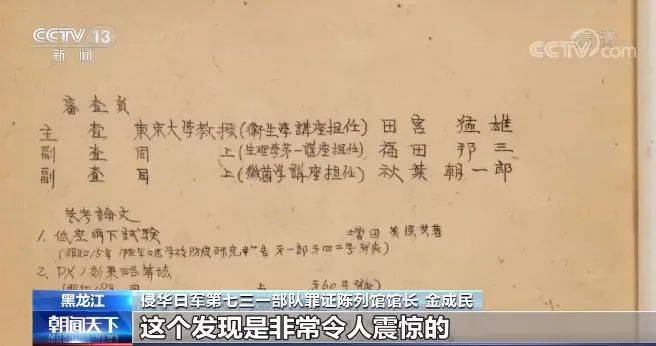 CCTV 13
新闻
CCTV.com
審査員
主 査 東京大学教授(衛生學講座担任) 田宮 猛雄
副 査 同 上(生理学第一講座担任) 福田 邦三
副 査 同 上(黴菌学講座担任) 秋葉 朝一郎
参考論文
1. 低空雨下試験 増田美保共著
2. PXノ効果略算法
黑龙江
侵华日军第七三一部队罪证陈列馆馆长 金成民
朝闻天下
这个发现是非常令人震惊的